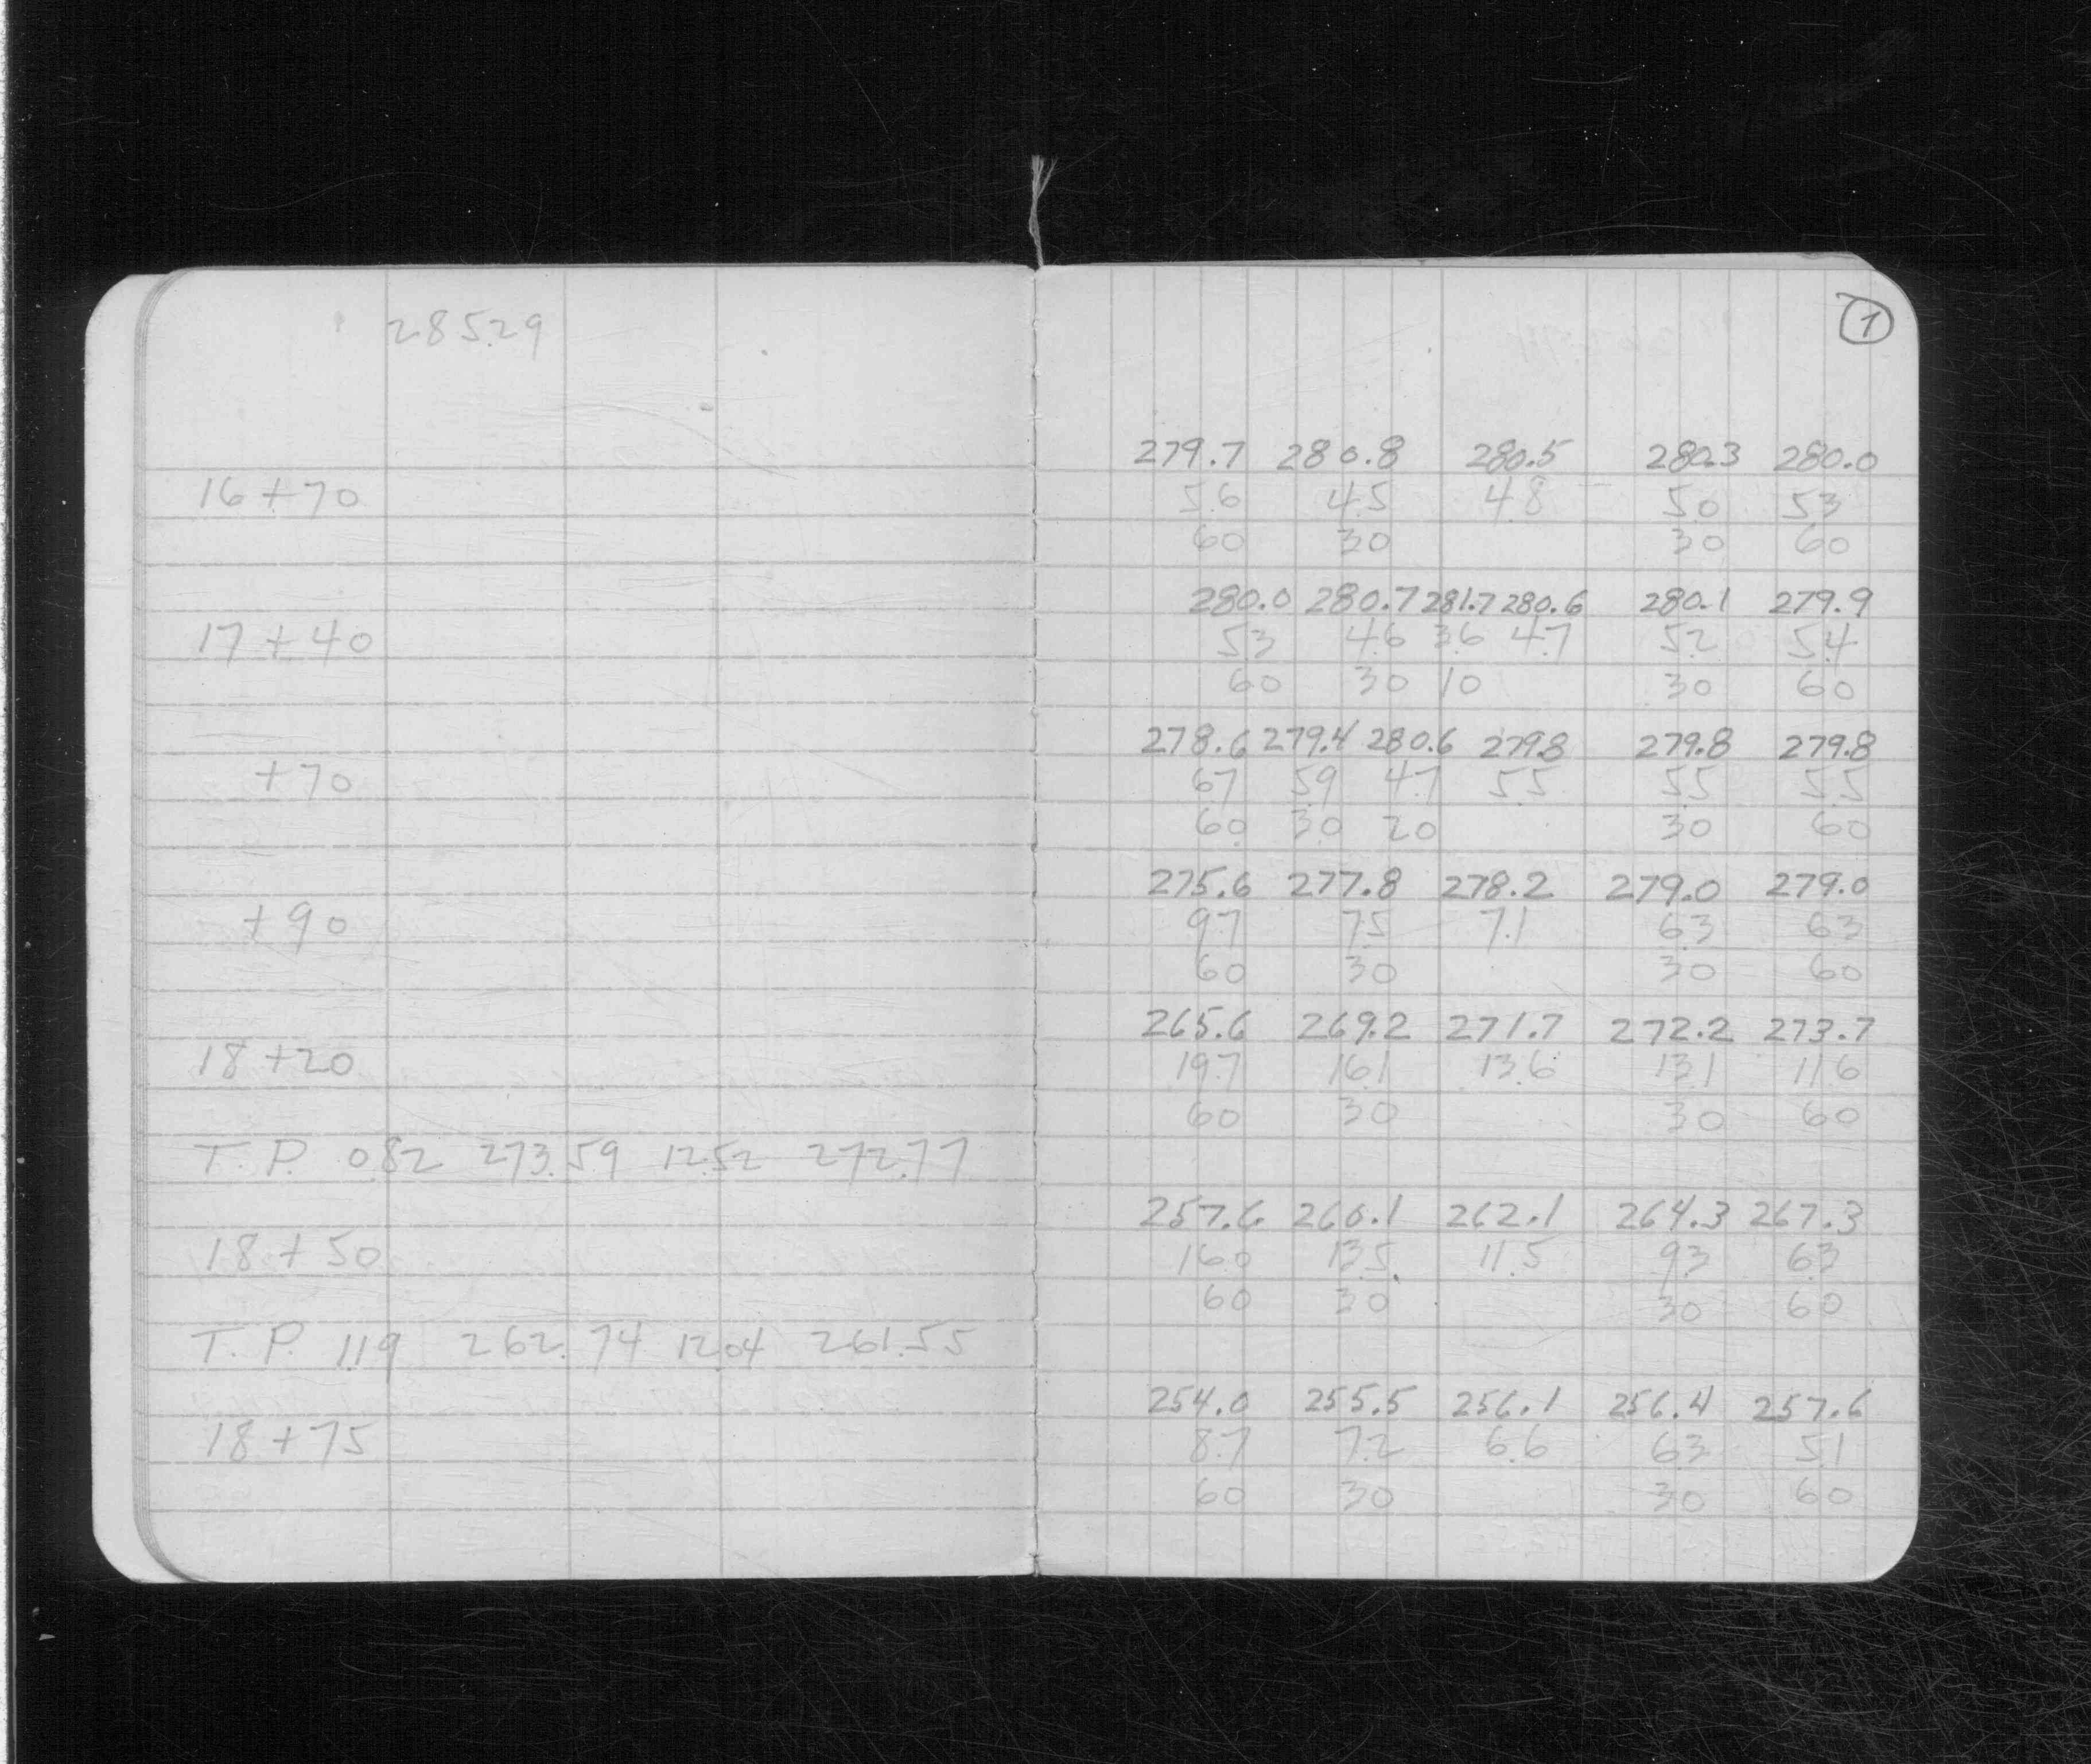 285.29
1
279.7 280.8 280.5 280.3 280.0
16+70 5.6 4.5 4.8 5.0 5.3
60 30 30 60
280.0 280.7 281.7 280.6 280.1 279.9
17+40 5.3 4.6 3.6 4.7 5.2 5.4
60 30 10 30 60
278.6 279.4 280.6 279.8 279.8 279.8
+70 6.7 5.9 4.7 5.5 5.5 5.5
60 30 20 30 60
275.6 277.8 278.2 279.0 279.0
+90 9.7 7.5 7.1 6.3 6.3
60 30 30 60
265.6 269.2 271.7 272.2 273.7
18+20 19.7 16.1 13.6 13.1 11.6
60 30 30 60
T.P. 0.82 273.59 12.52 272.77
257.6 260.1 262.1 264.3 267.3
18+50 16.0 13.5 11.5 9.3 6.3
60 30 30 60
T.P. 1.19 262.74 12.04 261.55
254.0 255.5 256.1 256.4 257.6
18+75 8.7 7.2 6.6 6.3 5.1
60 30 30 60